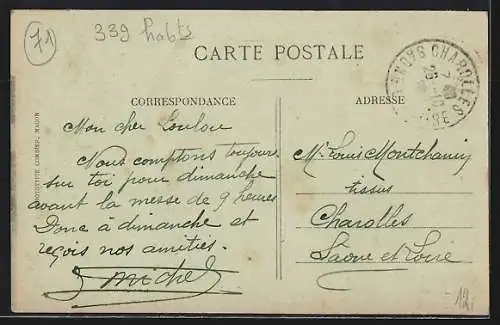 71
339 habts
CARTE POSTALE
CHAROLLES
CORRESPONDANCE
ADRESSE
Mon cher Loulou
Nous comptons toujours
sur toi pour dimanche
avant la messe de 9 heures
Donc à dimanche et
reçois nos amitiés.
Michel
Mr Louis Montcharmin
tissus
Charolles
Saône et Loire
12